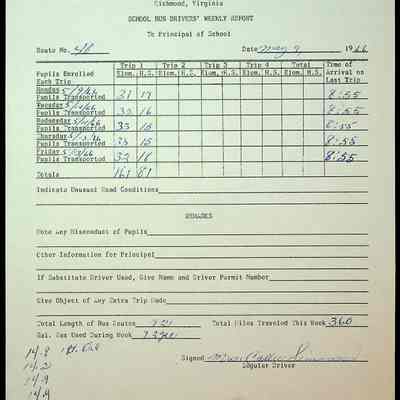 Richmond, Virginia
SCHOOL BUS DRIVERS' WEEKLY REPORT
To Principal of School
Route No. Date May 9, 1966
Trip 1 Trip 2 Trip 3 Trip 4 Total Time of
Pupils Enrolled Elem. H.S. Elem. H.S. Elem. H.S. Elem. H.S. Elem. H.S. Arrival on
Each Trip Last Trip
Monday 5/9/66
Pupils Transported 31 17 8:55
Tuesday
Pupils Transported 16 8:55
Wednesday
Pupils Transported 33 15 8:55
Thursday
Pupils Transported 15 8:55
Friday
Pupils Transported 32 18 8:55
Totals 161 81
Indicate Unusual Road Conditions
REMARKS
Note Any Misconduct of Pupils
Other Information for Principal
If Substitute Driver Used, Give Name and Driver Permit Number
Give Object of Any Extra Trip Made
Total Length of Bus Routes Total Miles Traveled This Week 360
Gal. Gas Used During Week
14.8
14.2
14.9
Signed Mrs.
Regular Driver